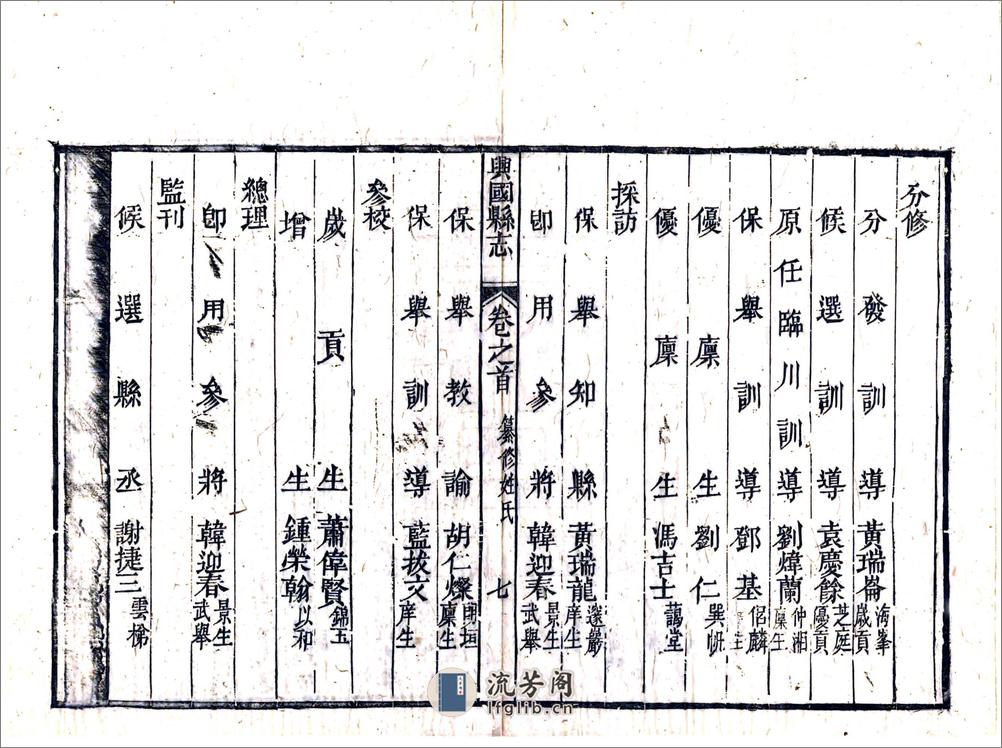 分修
分發訓導黃瑞崙海峯歲貢
候選訓導袁慶餘芝庭優貢
原任臨川訓導劉煒蘭仲湘廩生
保舉訓導鄧基侶麟
優廩生劉仁巽帡
優廩生馮吉士藹堂
採訪
保舉知縣黃瑞龍選巖庠生
即用參將韓迎春景生武舉
興國縣志 卷之首 纂修姓氏 七
保舉教諭胡仁燦國垣廩生
保舉訓導藍拔文庠生
參校
歲貢生蕭偉賢錦玉
增生鍾榮翰以和
總理
即用參將韓迎春景生武舉
監刊
候選縣丞謝捷三雲梯
流芳阁
lfglib.cn